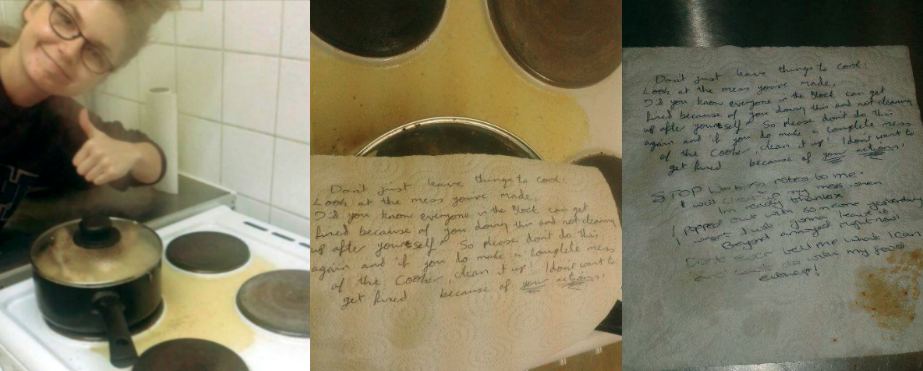 Don't just leave things to cook.
Look at the mess you've made.
Did you know everyone in the block can get
fined because of you doing this and not cleaning
up after yourself. So please dont do this
again and if you do make a complete mess
of the Cooker, clean it up! I dont want to
get fined because of your actions!
Don't just leave things to cook.
Look at the mess you've made.
Did you know everyone in the block can get
fined because of you doing this and not cleaning
up after yourself. So please dont do this
again and if you do make a complete mess
of the Cooker, clean it up! I dont want to
get fined because of your actions!
STOP notes to me.
I will clean my mess when
I'm
I popped out
wasn't just gonna leave it.
Beyond right now.
Dont ever tell me what I can
and my food